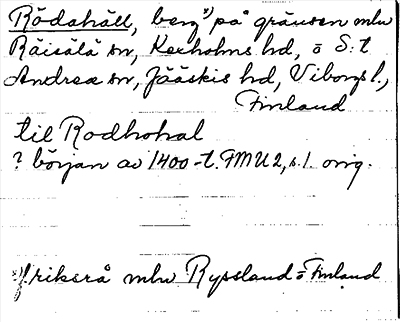 Rödahäll, berg x) på gränsen mlw
Räisälä sn, Kexholms hd, o S:t
Andrea sn, Jääskis hd, Viborgs l.,
Finland
til Rodhohal
? början av 1400-t. FMU 2, s. 1. orig.
x) riksrå mlw Ryssland o Finland